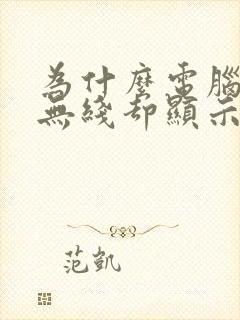 為什麼電腦
無綫却顯示
范凱